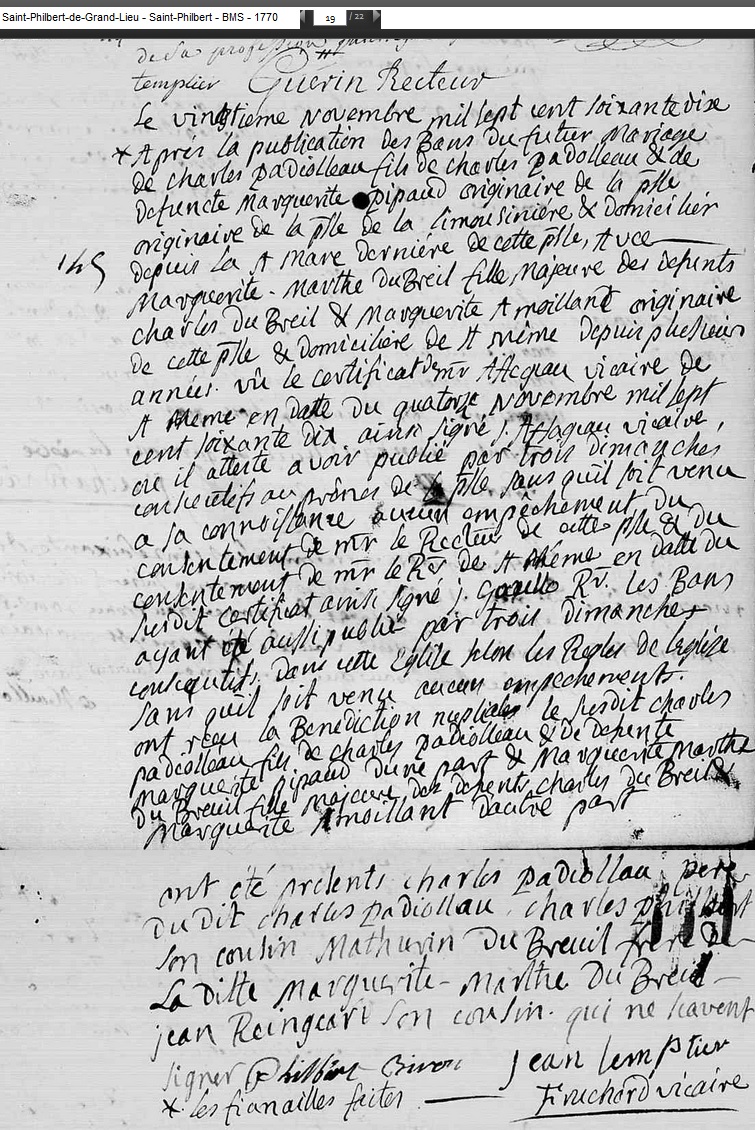 Saint-Philbert-de-Grand-Lieu - Saint-Philbert - BMS - 1770 19 / 22
de sa profession
templier Guerin Recteur
Le vingtieme Novembre mil sept cent soixante dix
* Après la publication des Bans du futur Mariage
de charles padiolleau fils de charles padiolleau & de
defuncte Marguerite pipaud originaire de la psse
originaire de la psse de la limousiniére & domicilier
depuis la St Mare derniére de cette psse, Avec
145
Marguerite - Marthe DuBreil fille Majeure des defunts
charles Du Breil & Marguerite Amoillant originaire
de cette psse & domiciliére de St même depuis plusieurs
années. vu le certificat de mr vicaire de
St Meme en datte du quatorze Novembre mil sept
cent soixante dix ainsi signé j. vicaire,
ou il atteste avoir publié par trois dimanches
consecutifs au prônes de la psse sans quil soit venu
a sa connoissance aucun empêchement du
consentement de mr le Recteur de cette psse & du
consentement de mr le Rr de St Même en datte du
susdit certificat ainsi signé j. Rr. les Bans
ayant été aussi publié par trois dimanches
consecutifs. Dans cette Eglise selon les Regles de leglise
sans quil soit venu aucun empechements.
ont reçu la Benediction nuptiale le susdit charles
padiolleau fils de charles padiolleau & de defunte
Marguerite pipaud dune part & Marguerite Marthe
du Breuil fille Majeure des defunts charles du Breuil &
Marguerite Amoillant dautre part
ont été presents charles padiollau pere
du dit charles padiollau, charles philbert
son cousin Mathurin Du Breuil frere de
La ditte Marguerite - Marthe Du Breil
jean son cousin. qui ne scavent
signer Philbert Jean temptier
* les fianailles faites vicaire